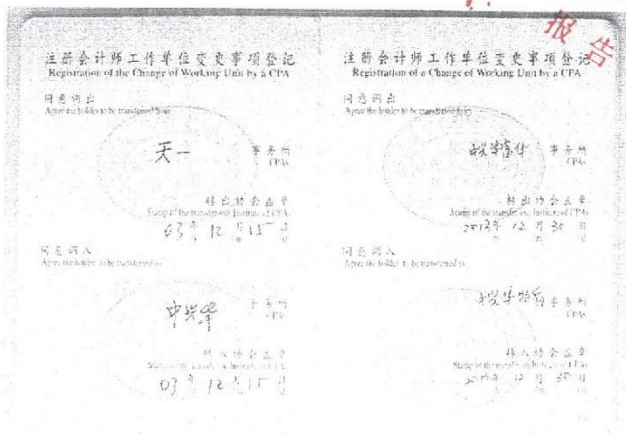 报告
注册会计师工作单位变更事项登记
Registration of the Change of Working Unit by a CPA
同意调出
Agree the holder to be transferred from
天一 事务所
CPAs
转出协会盖章
Stamp of the transfer-out Institute of CPAs
03年12月15日
同意调入
Agree the holder to be transferred to
中兴华 事务所
CPAs
转入协会盖章
Stamp of the transfer-in Institute of CPAs
03年12月15日
注册会计师工作单位变更事项登记
Registration of a Change of Working Unit by a CPA
同意调出
Agree the holder to be transferred from
事务所
CPAs
转出协会盖章
Stamp of the transfer-out Institute of CPAs
2013年12月30日
同意调入
Agree the holder to be transferred to
事务所
CPAs
转入协会盖章
Stamp of the transfer-in Institute of CPAs
12月30日